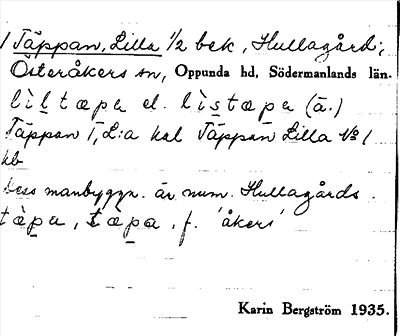 Täppan, Lilla 1/2 bek, Hullagård;
Österåkers sn, Oppunda hd, Södermanlands län.
lìltæpa el. lìstæpa (ä.)
Täppan 1, L:a kal Täppan Lilla No 1
kb
Dess manbyggn. är num. Hullagårds.
tæpa, tæpa, f. 'åkers'
Karin Bergström 1935.